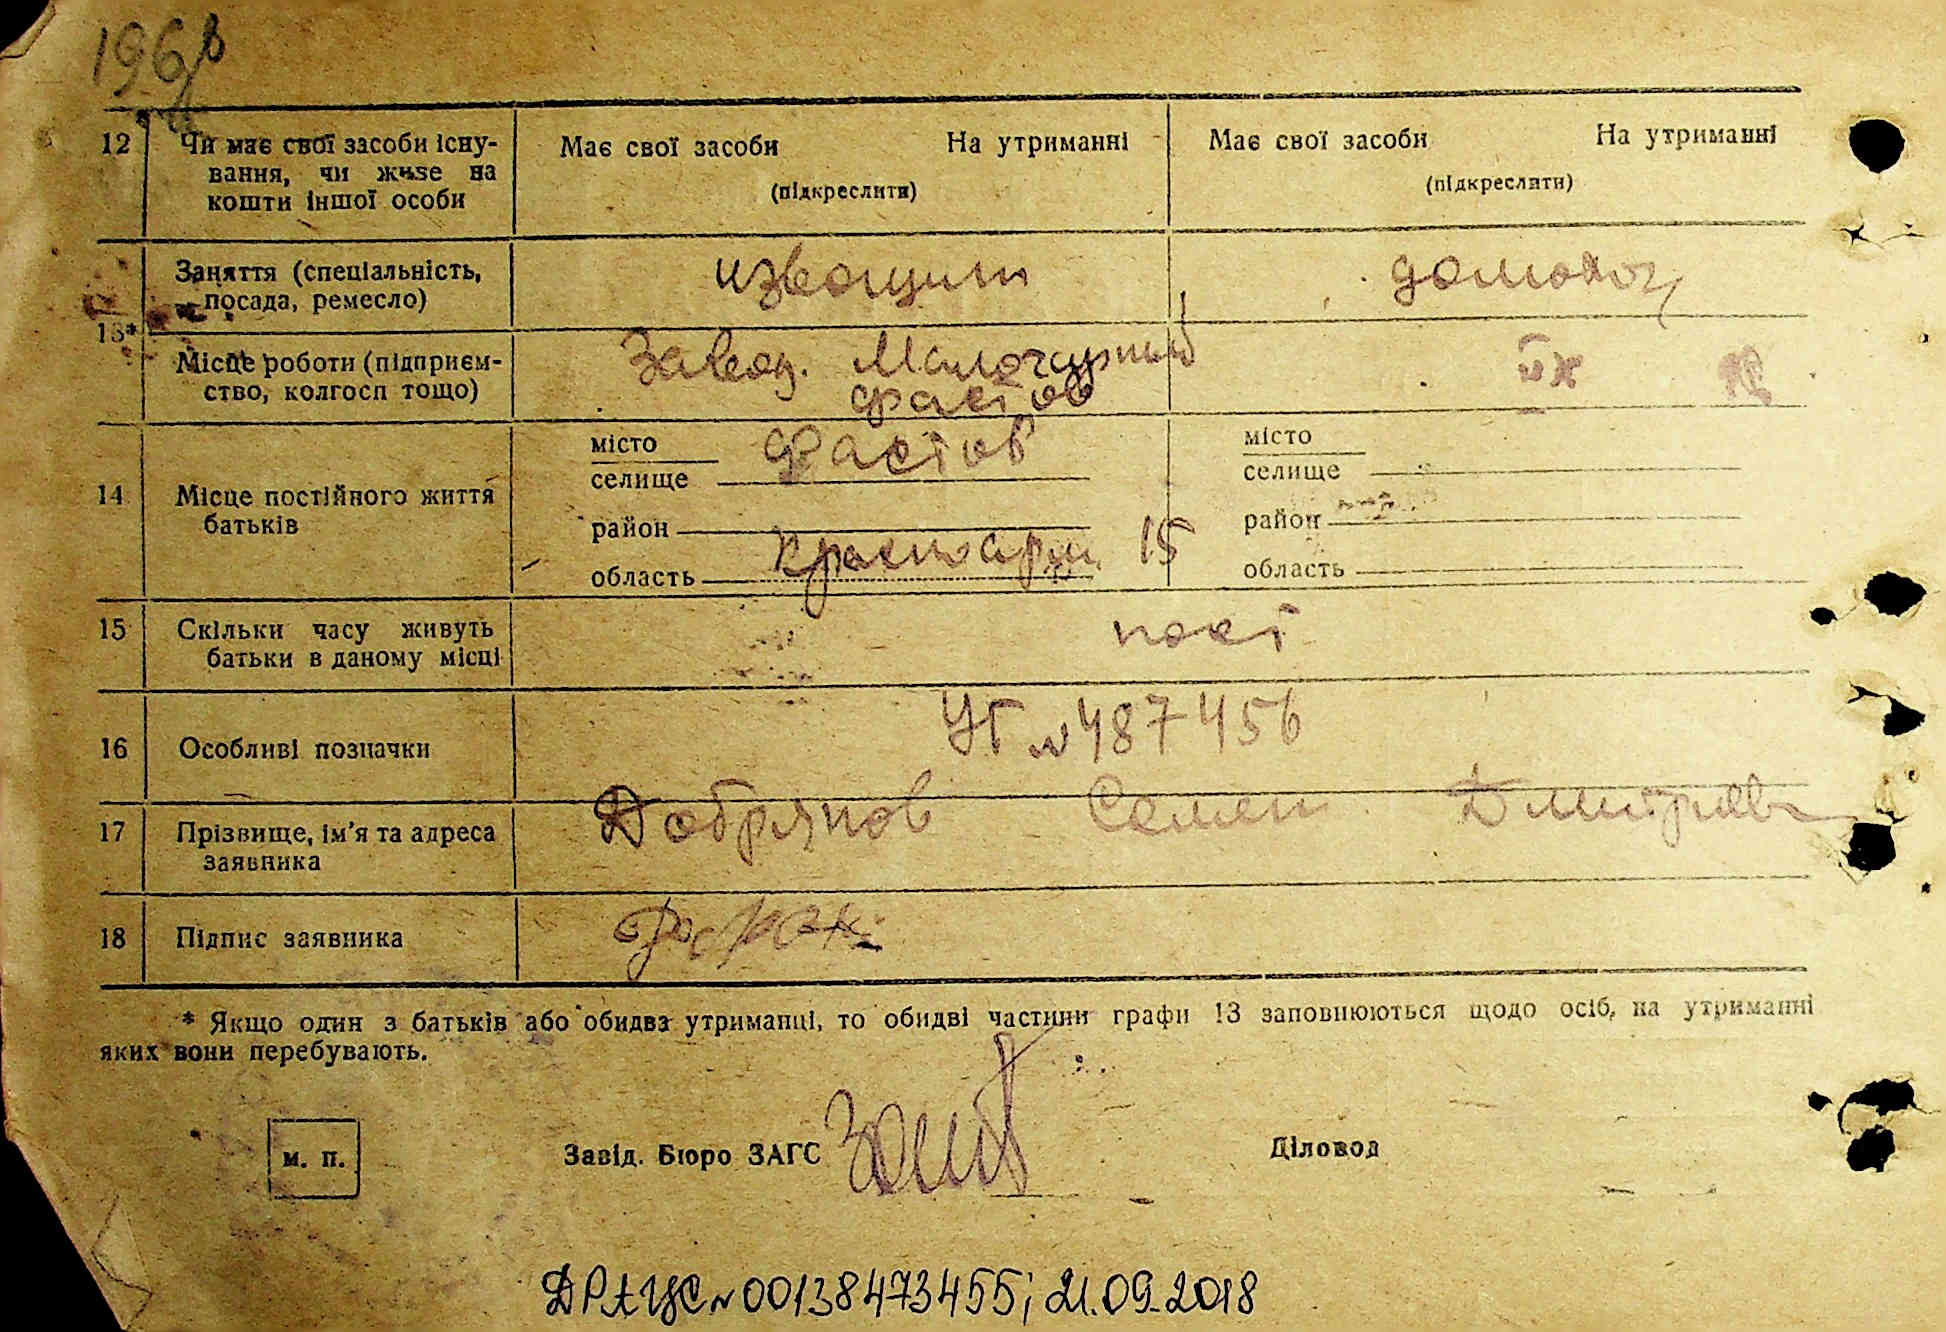 12 Чи має свої засоби існу-
вання, чи живе на
кошти іншої особи
Має свої засоби На утриманні
(підкреслити)
Має свої засоби На утриманні
(підкреслити)
13*
Заняття (спеціальність,
посада, ремесло)
извощик
домохоз
Місце роботи (підприєм-
ство, колгосп тощо)
Завод.
Фастов
14 Місце постійного життя
батьків
місто Фастов
селище
район
область Красноарм. 15
місто
селище
район
область
15 Скільки часу живуть
батьки в даному місці
пост
16 Особливі позначки
УГ № 487456
17 Прізвище, ім'я та адреса
заявника
Добрянов Семен Дмитриев
18 Підпис заявника
* Якщо один з батьків або обидва утриманці, то обидві частини графи 13 заповнюються щодо осіб, на утриманні
яких вони перебувають.
м. п.
Завід. Бюро ЗАГС
Діловод
ДРАЦС № 00138473455; 21.09.2018